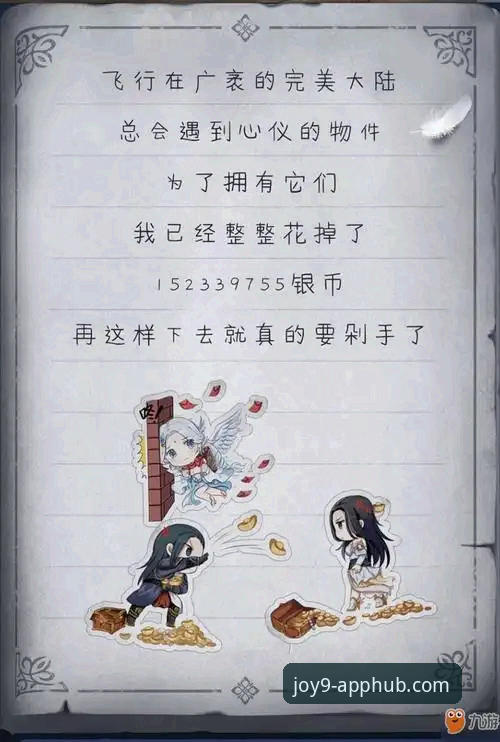 飞行在广袤的完美大陆
总会遇到心仪的物件
为了拥有它们
我已经整整花掉了
152339755银币
再这样下去就真的要剁手了
咚!
joy9-apphub.com
九游